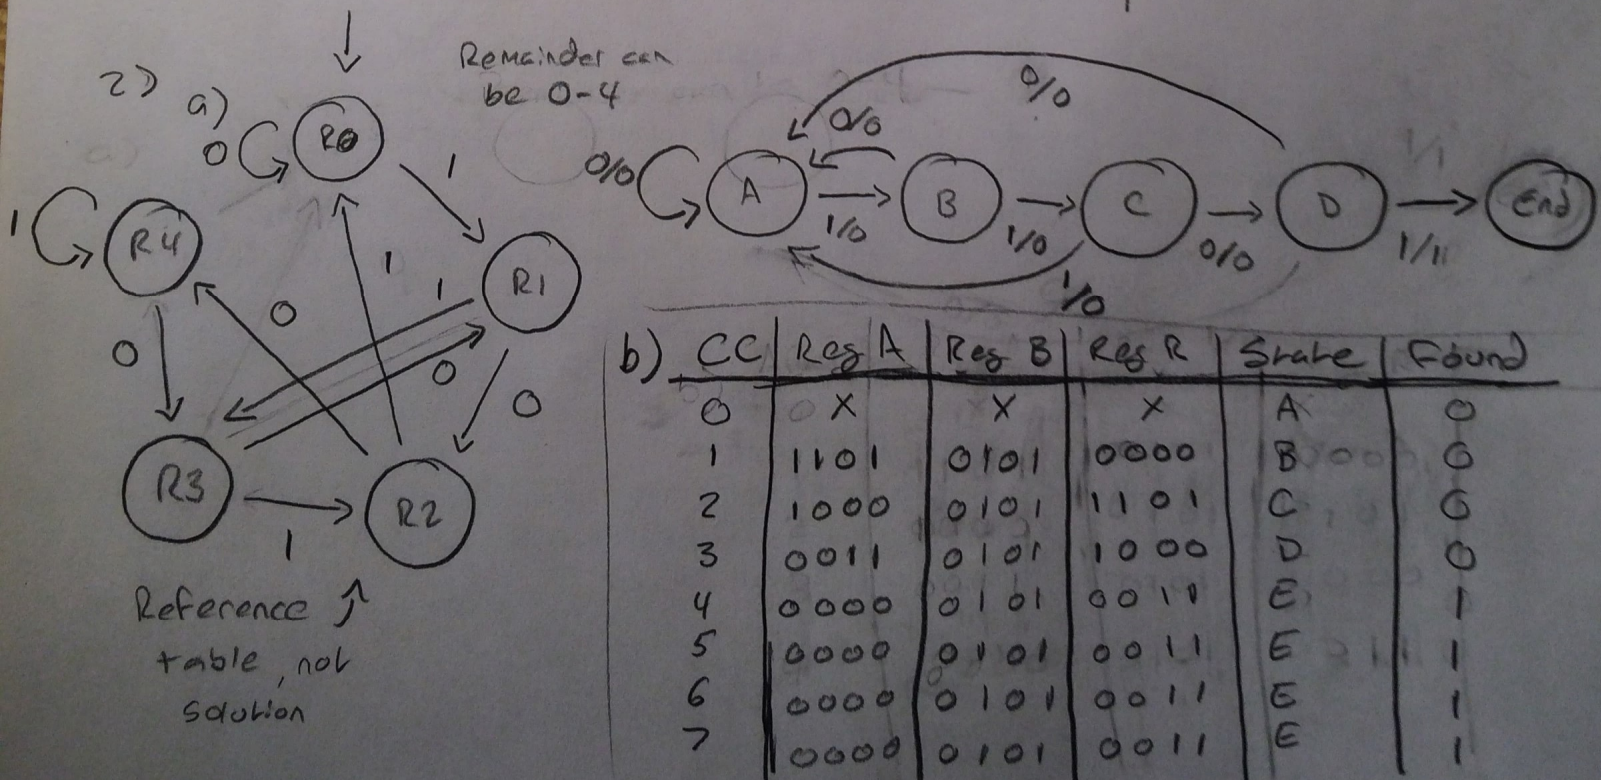 2) a)
Remainder can
be 0-4
R0
0
1
R4
1
R1
0
1
1
0
0
0
R3
R2
1
Reference
table, not
solution
0/0
0/0
0/0
A
B
C
D
End
1/0
1/0
0/0
1/1
1/0
b) CC | Reg A | Reg B | Reg R | State | Found
0 X X X A 0
1 1101 0101 0000 B 0
2 1000 0101 1101 C 0
3 0011 0101 1000 D 0
4 0000 0101 0011 E 1
5 0000 0101 0011 E 1
6 0000 0101 0011 E 1
7 0000 0101 0011 E 1